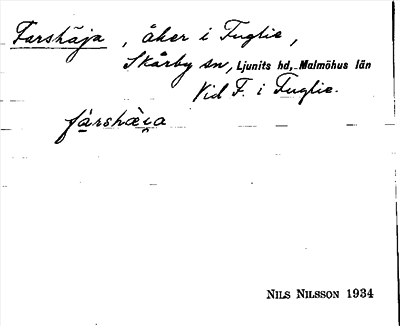 Farshäja, åker i Fuglie,
Skårby sn, Ljunits hd, Malmöhus län
Vid F. i Fuglie.
fàrshæ̀i̯a
NILS NILSSON 1934